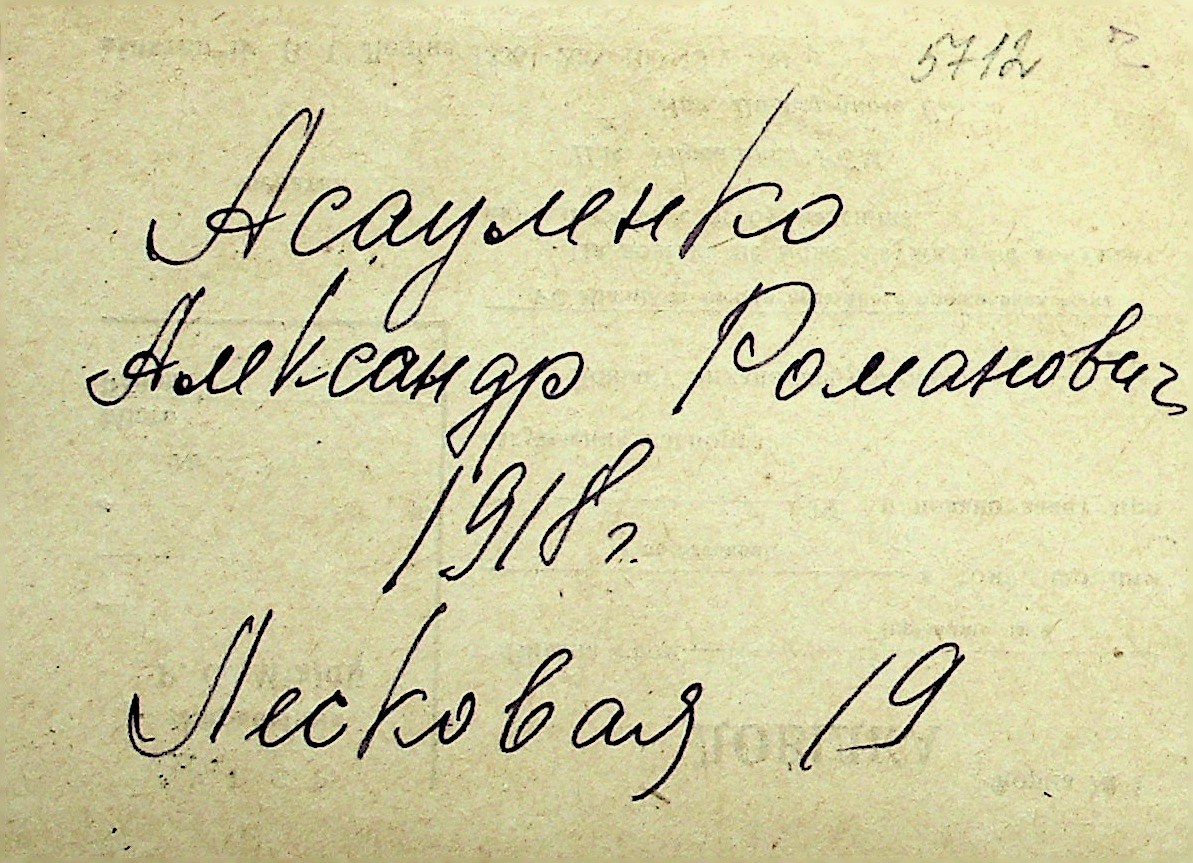 5712
Асауленко
Александр Романович
1918 г.
Лесковая 19